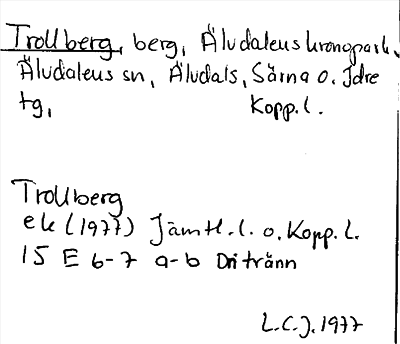 Trollberg, berg, Äludaleus kronopark,
Äludaleus sn, Äludals, Särna o. Idre
tg, Kopp. l.
Trollberg
ek (1977) Jämtl. l. o. Kopp. L.
15 E 6-7 a-b
L.C.J. 1977